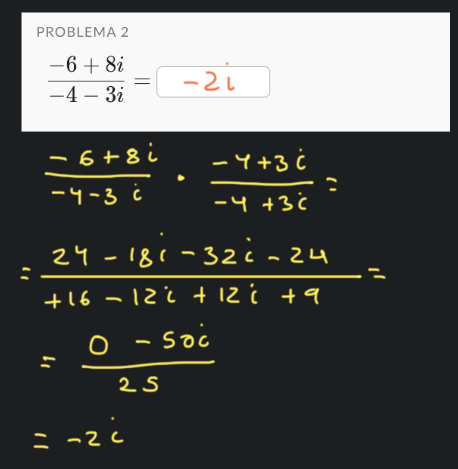 PROBLEMA 2
\frac{-6 + 8i}{-4 - 3i} = -2i
\frac{-6+8i}{-4-3i} \cdot \frac{-4+3i}{-4+3i} =
= \frac{24-18i-32i-24}{+16-12i+12i+9} =
= \frac{0-50i}{25}
= -2i